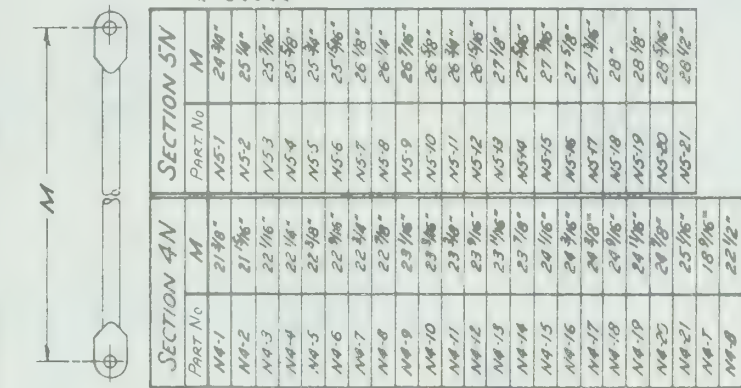 M
SECTION 5N
PART. No M
N5-1 24 3/4"
N5-2 25 1/4"
N5-3 25 7/16"
N5-4 25 5/8"
N5-5 25 3/4"
N5-6 25 15/16"
N5-7 26 1/8"
N5-8 26 1/4"
N5-9 26 7/16"
N5-10 26 5/8"
N5-11 26 3/4"
N5-12 26 15/16"
N5-13 27 1/8"
N5-14 27 5/16"
N5-15 27 7/16"
N5-16 27 5/8"
N5-17 27 13/16"
N5-18 28"
N5-19 28 1/8"
N5-20 28 5/16"
N5-21 28 1/2"
SECTION 4N
PART No M
N4-1 21 3/8"
N4-2 21 15/16"
N4-3 22 1/16"
N4-4 22 1/4"
N4-5 22 3/8"
N4-6 22 9/16"
N4-7 22 3/4"
N4-8 22 7/8"
N4-9 23 1/16"
N4-10 23 3/16"
N4-11 23 3/8"
N4-12 23 9/16"
N4-13 23 11/16"
N4-14 23 7/8"
N4-15 24 1/16"
N4-16 24 3/16"
N4-17 24 3/8"
N4-18 24 9/16"
N4-19 24 11/16"
N4-20 24 7/8"
N4-21 25 1/16"
N4-T 18 9/16"
N4-B 22 1/2"